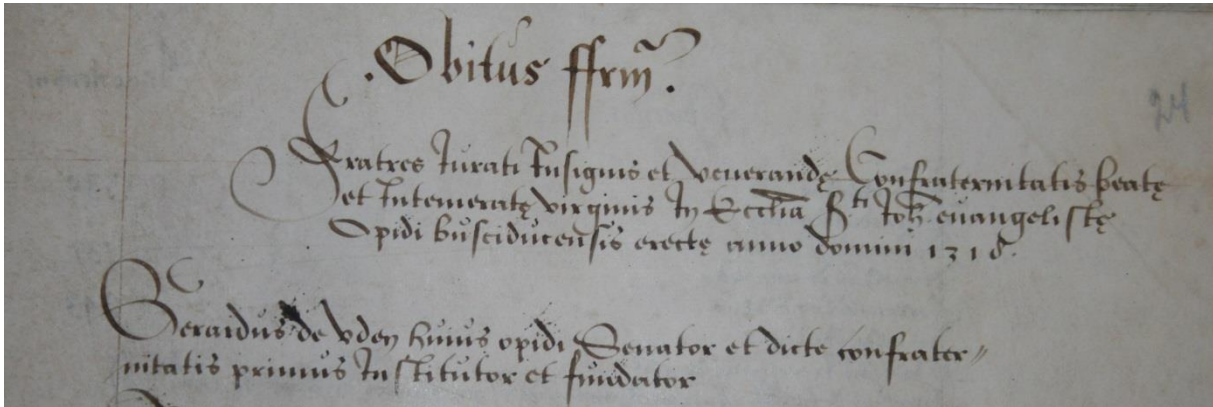 .Obitus ffrm̃.
24
Fratres Iurati Insignis et venerandę Confraternitatis beatę
et Intemeratę virginis In Eccl̃ia S.ti Ioh̃ euangelistę
Opidi busciducensis erectę anno domini 1318.
Gerardus de vden huius opidi Senator et dicte confrater〃
nitatis primus Institutor et fundator